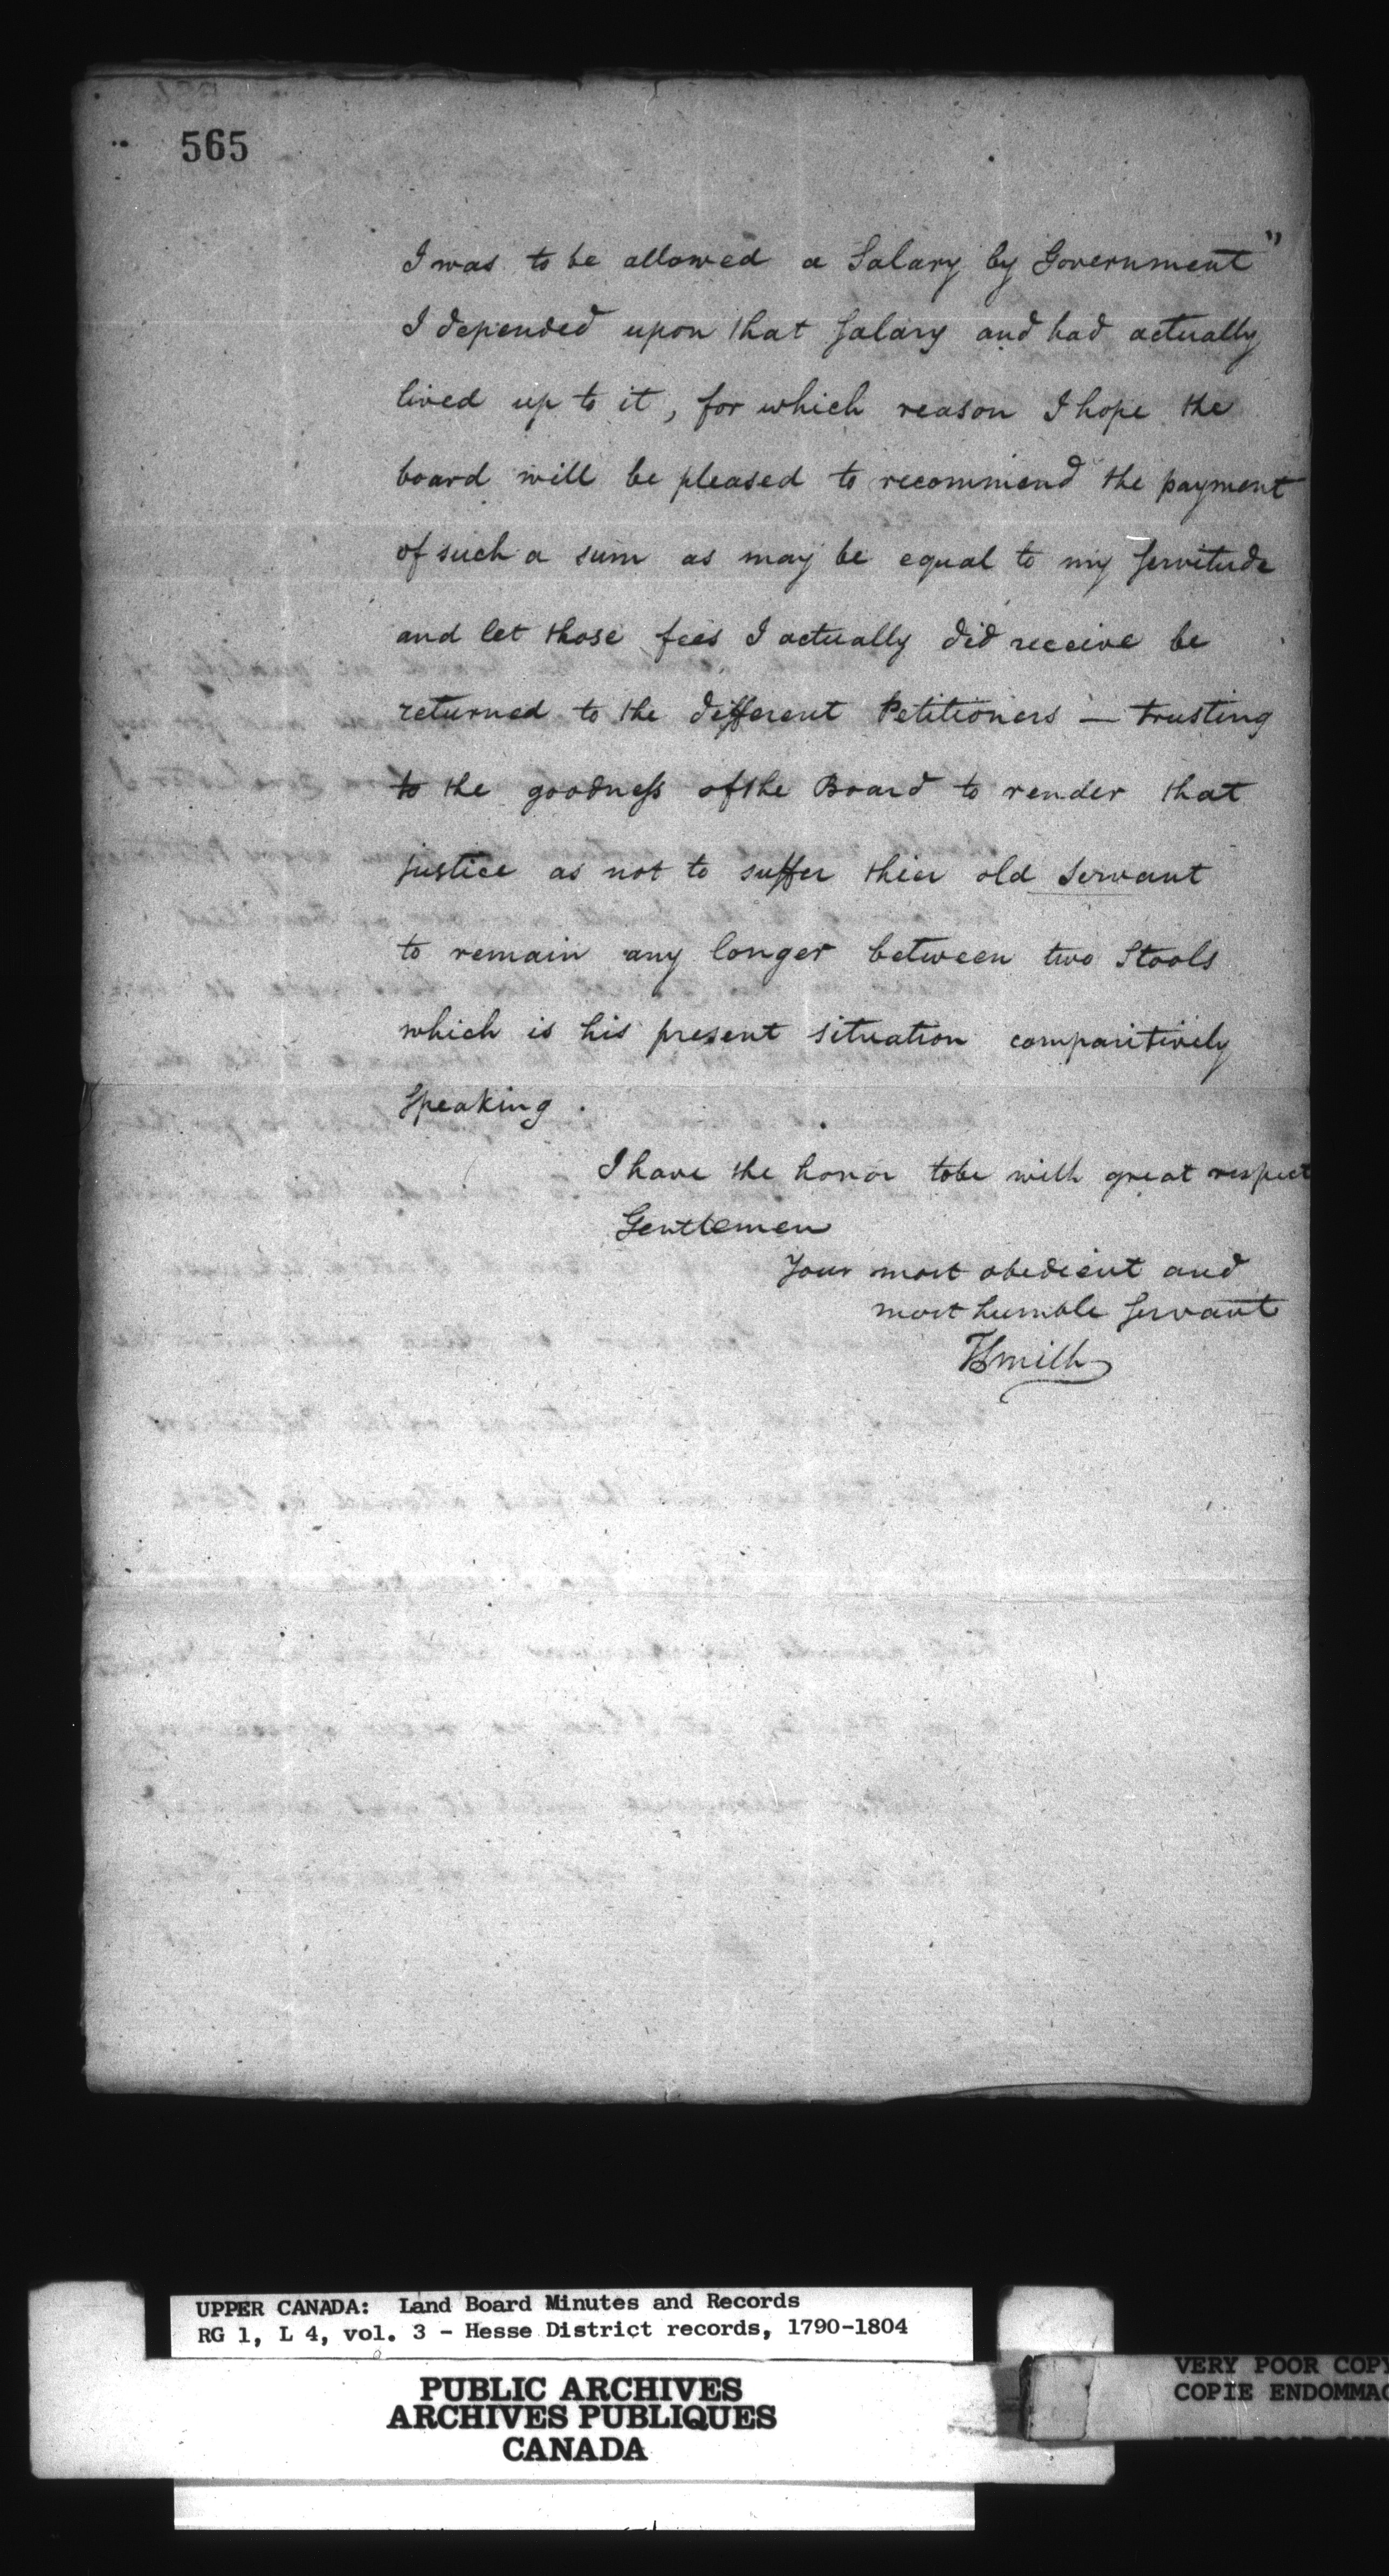 565
I was to be allowed a Salary by Government"
I depended upon that Salary and had actually
lived up to it, for which reason I hope the
board will be pleased to recommend the payment
of such a sum as may be equal to my Servitude
and let those fees I actually did receive be
returned to the different Petitioners — trusting
to the goodness of the Board to render that
justice as not to suffer thier old Servant
to remain any longer between two Stools
which is his present situation comparitively
Speaking.
I have the honor to be with great respect
Gentlemen
Your most obedient and
most humble Servant
TSmith
UPPER CANADA: Land Board Minutes and Records
RG 1, L 4, vol. 3 - Hesse District records, 1790-1804
PUBLIC ARCHIVES
ARCHIVES PUBLIQUES
CANADA
VERY POOR COPY
COPIE ENDOMMAG